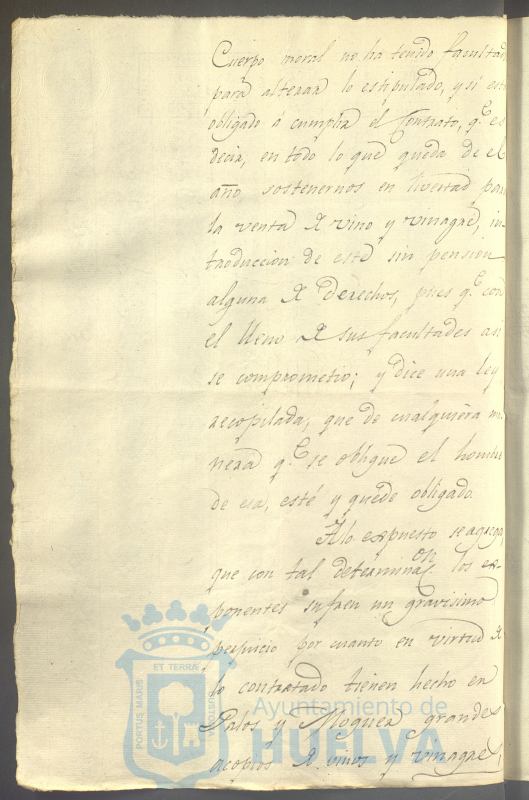 Cuerpo moral no ha tenido facultad
para alterar lo estipulado, y si está
obligado á cumplir el Contrato, q.e es
decir, en todo lo que queda de el
año, sostenernos en livertad para
la venta de vino y vinagre, in
troduccion de este sin pension
alguna de derechos, pues q.e con
el lleno de sus facultades asi
se comprometio; y dice una ley
recopilada, que de cualquiera ma
nera q.e se obligue el hombre
de esa, esté y quede obligado.
A lo expuesto se agrega,
que con tal determinac.on los ex
ponentes sufren un gravisimo
perjuicio por cuanto en virtud de
lo contratado tienen hecho en
Palos y Moguer grandes
acopios de vinos y vinagres,
ET TERRÆ
PORTUS MARIS
CUSTODIA
Ayuntamiento de
HUELVA